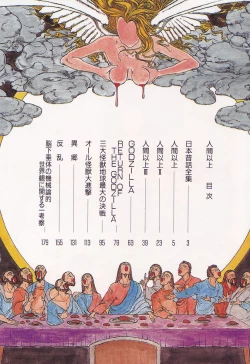 人間以上　目次
日本昔話全集　3
人間以上　5
人間以上Ⅱ　23
人間以上Ⅲ　39
GODZILLA　63
RETURN OF THE GODZILLA　79
三大怪獣地球最大の決戦　95
オール怪獣大進撃　113
異郷　131
反乱　155
脳下垂体の機械論的世界観に関する一考察　179